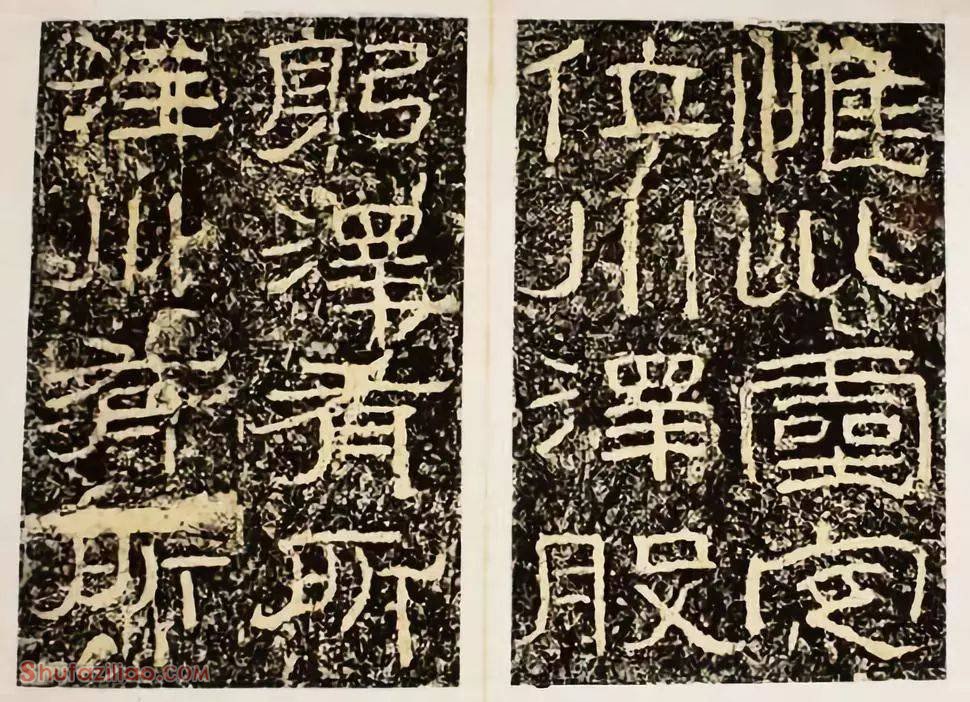 惟巛靈定
位川澤股
躬澤有所
注川有所
Shufaziliao.com